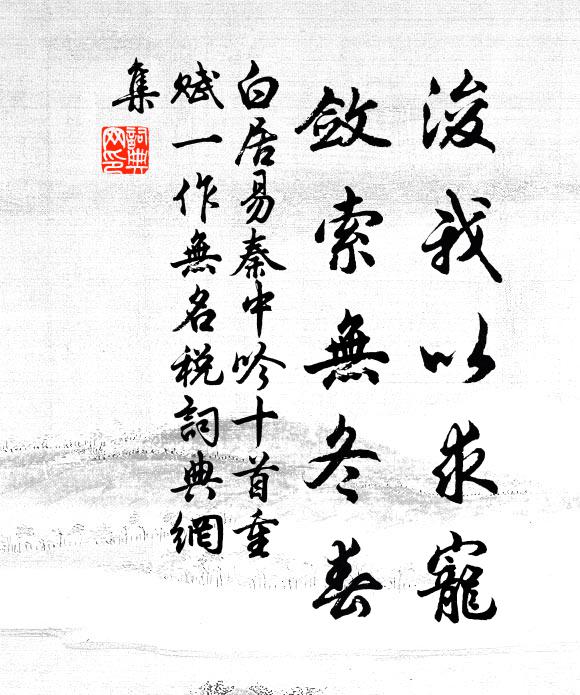 浚我以求寵
斂索無冬春
白居易秦中吟十首重
賦一作無名稅詞典網
集
詞典
网印